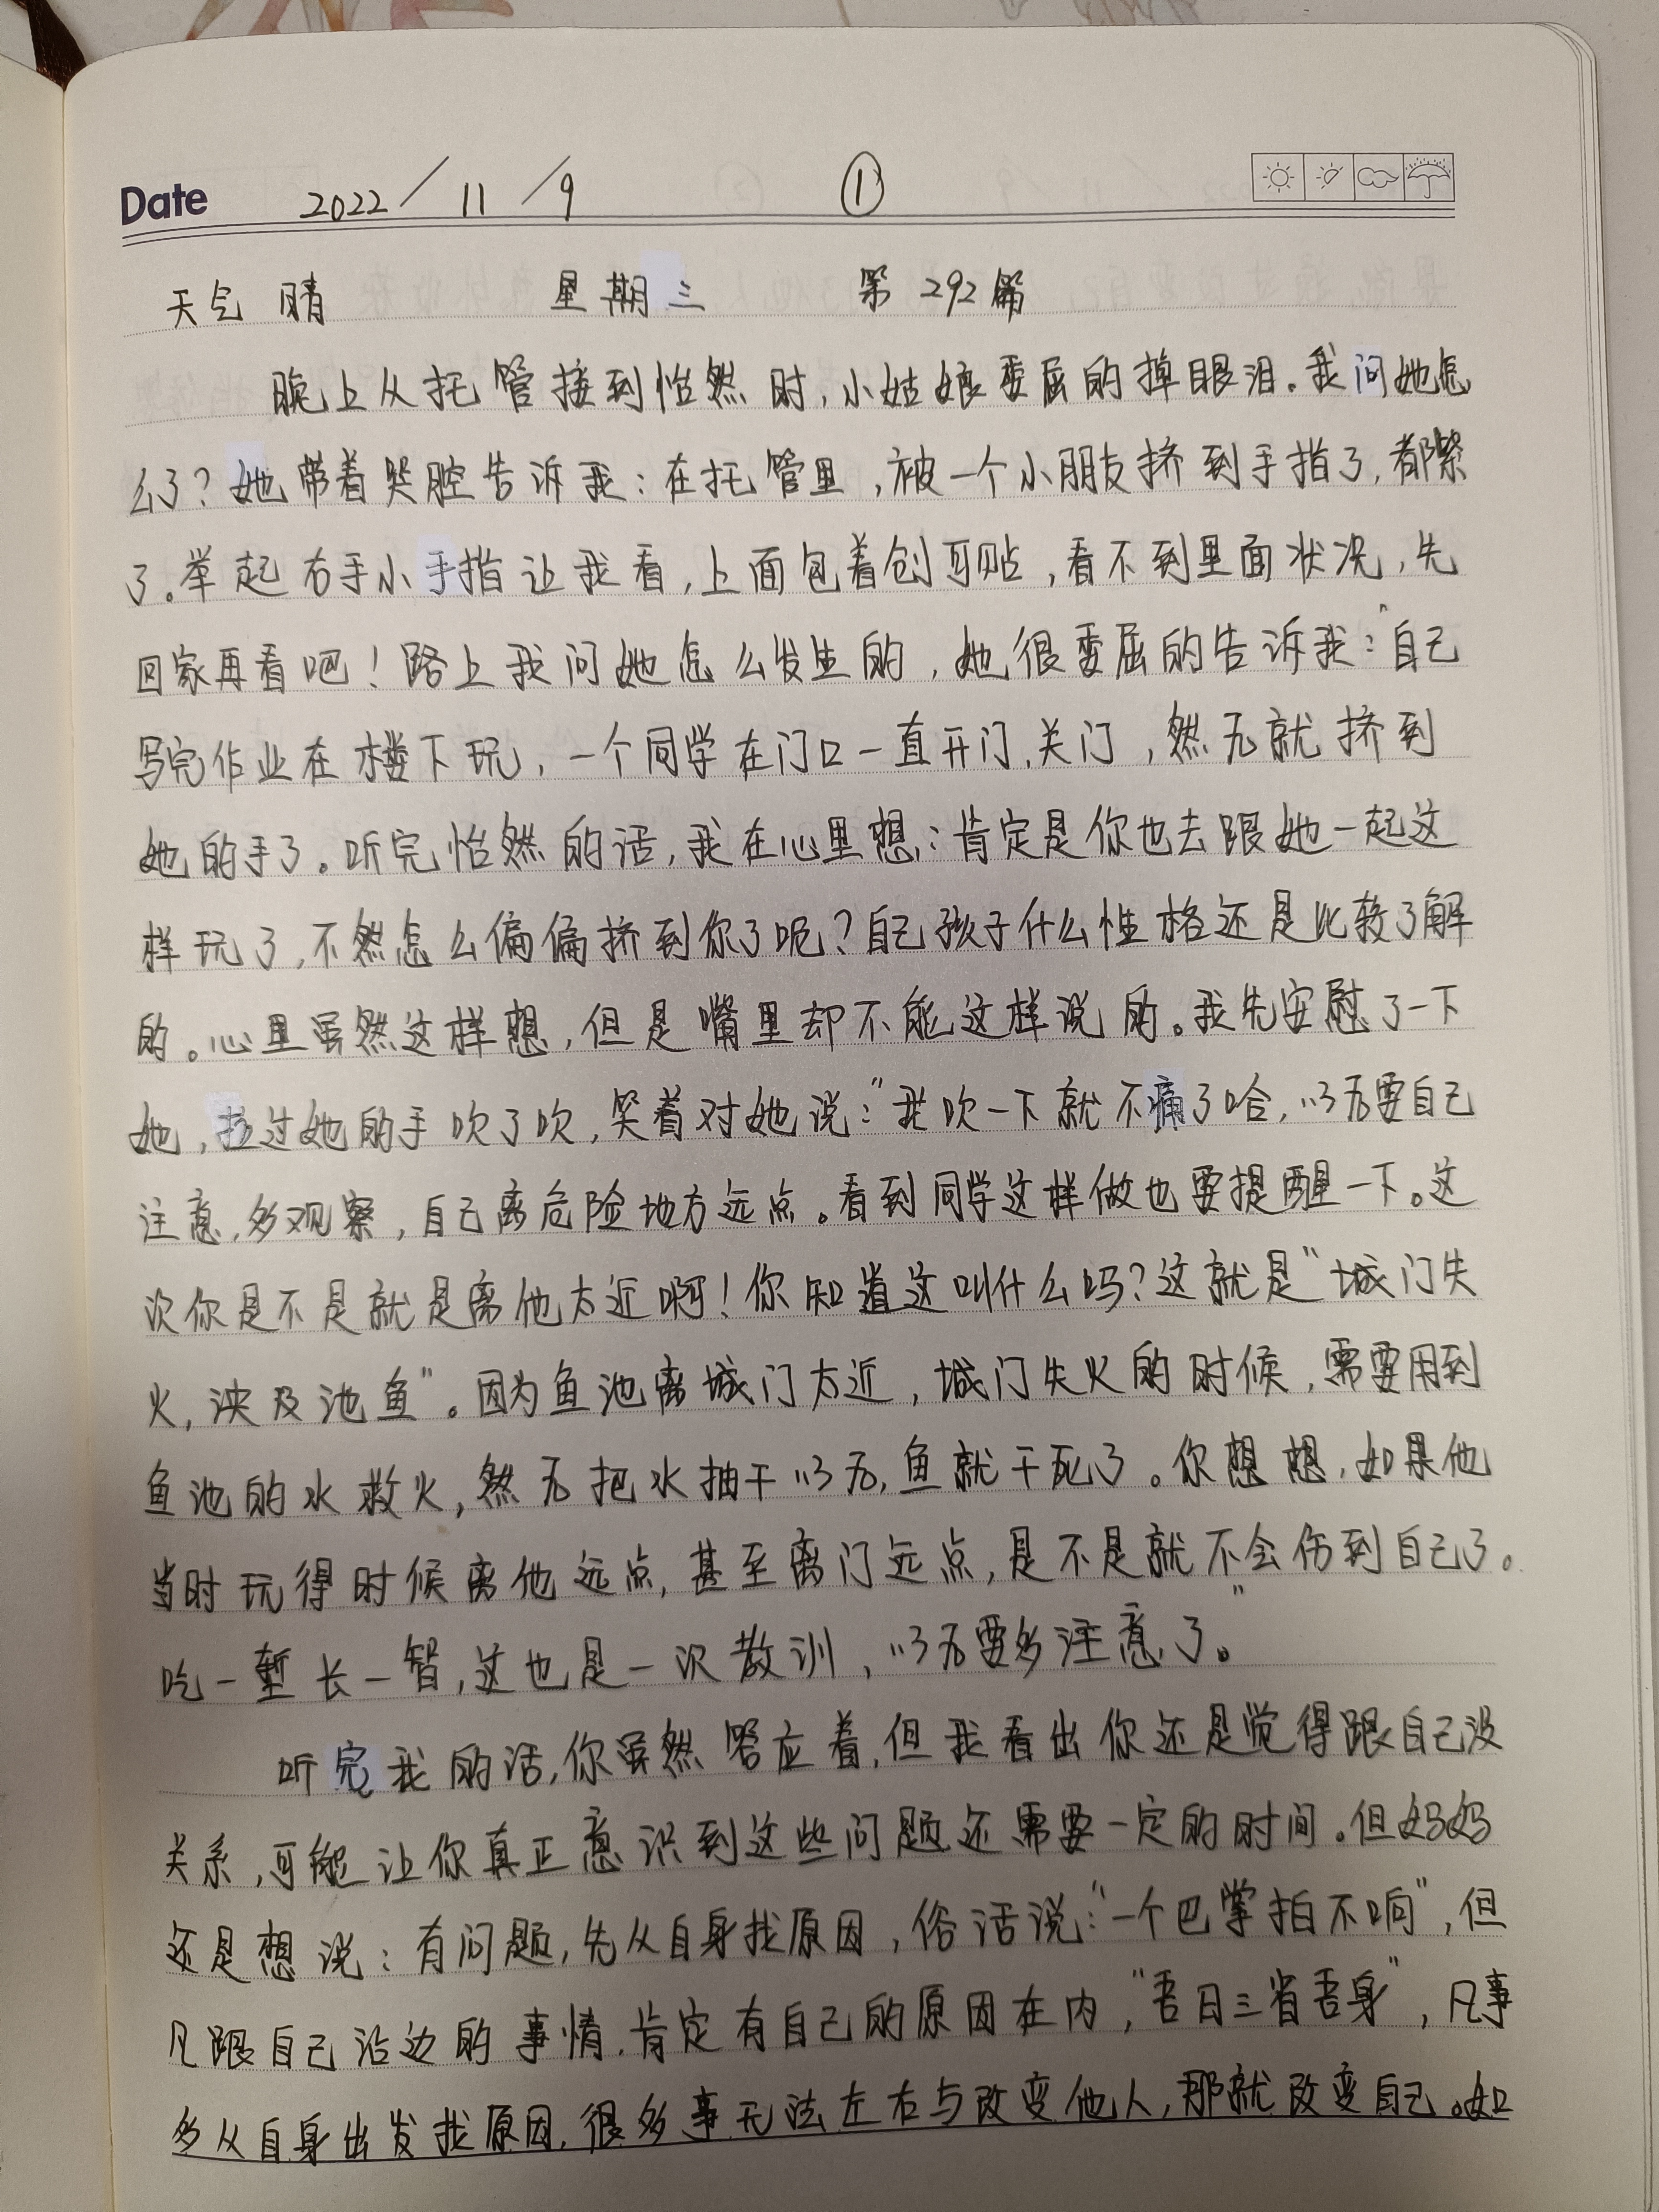 Date 2022/11/9 ①
天气 晴 星期三 第292篇
晚上从托管接到怡然时,小姑娘委屈的掉眼泪。我问她怎
么了?她带着哭腔告诉我:在托管里,被一个小朋友挤到手指了,都紫
了。举起右手小手指让我看,上面包着创可贴,看不到里面状况,先
回家再看吧!路上我问她怎么发生的,她很委屈的告诉我:"自己
写完作业在楼下玩,一个同学在门口一直开门、关门,然后就挤到
她的手了。听完怡然的话,我在心里想:肯定是你也去跟她一起这
样玩了,不然怎么偏偏挤到你了呢?自己孩子什么性格还是比较了解
的。心里虽然这样想,但是嘴里却不能这样说的。我先安慰了一下
她,拉过她的手吹了吹,笑着对她说:"我吹一下就不痛了哈,以后要自己
注意,多观察,自己离危险地方远点。看到同学这样做也要提醒一下。这
次你是不是就是离他太近啊!你知道这叫什么吗?这就是"城门失
火,泱及池鱼"。因为鱼池离城门太近,城门失火的时候,需要用到
鱼池的水救火,然后把水抽干以后,鱼就干死了。你想想,如果他
当时玩得时候离他远点,甚至离门远点,是不是就不会伤到自己了。
吃一堑长一智,这也是一次教训,以后要多注意了。"
听完我的话,你虽然答应着,但我看出你还是觉得跟自己没
关系,可能让你真正意识到这些问题还需要一定的时间。但妈妈
还是想说:有问题,先从自身找原因,俗话说:"一个巴掌拍不响",但
凡跟自己沾边的事情,肯定有自己的原因在内,"吾日三省吾身",凡事
多从自身出发找原因,很多事无法左右与改变他人,那就改变自己。如